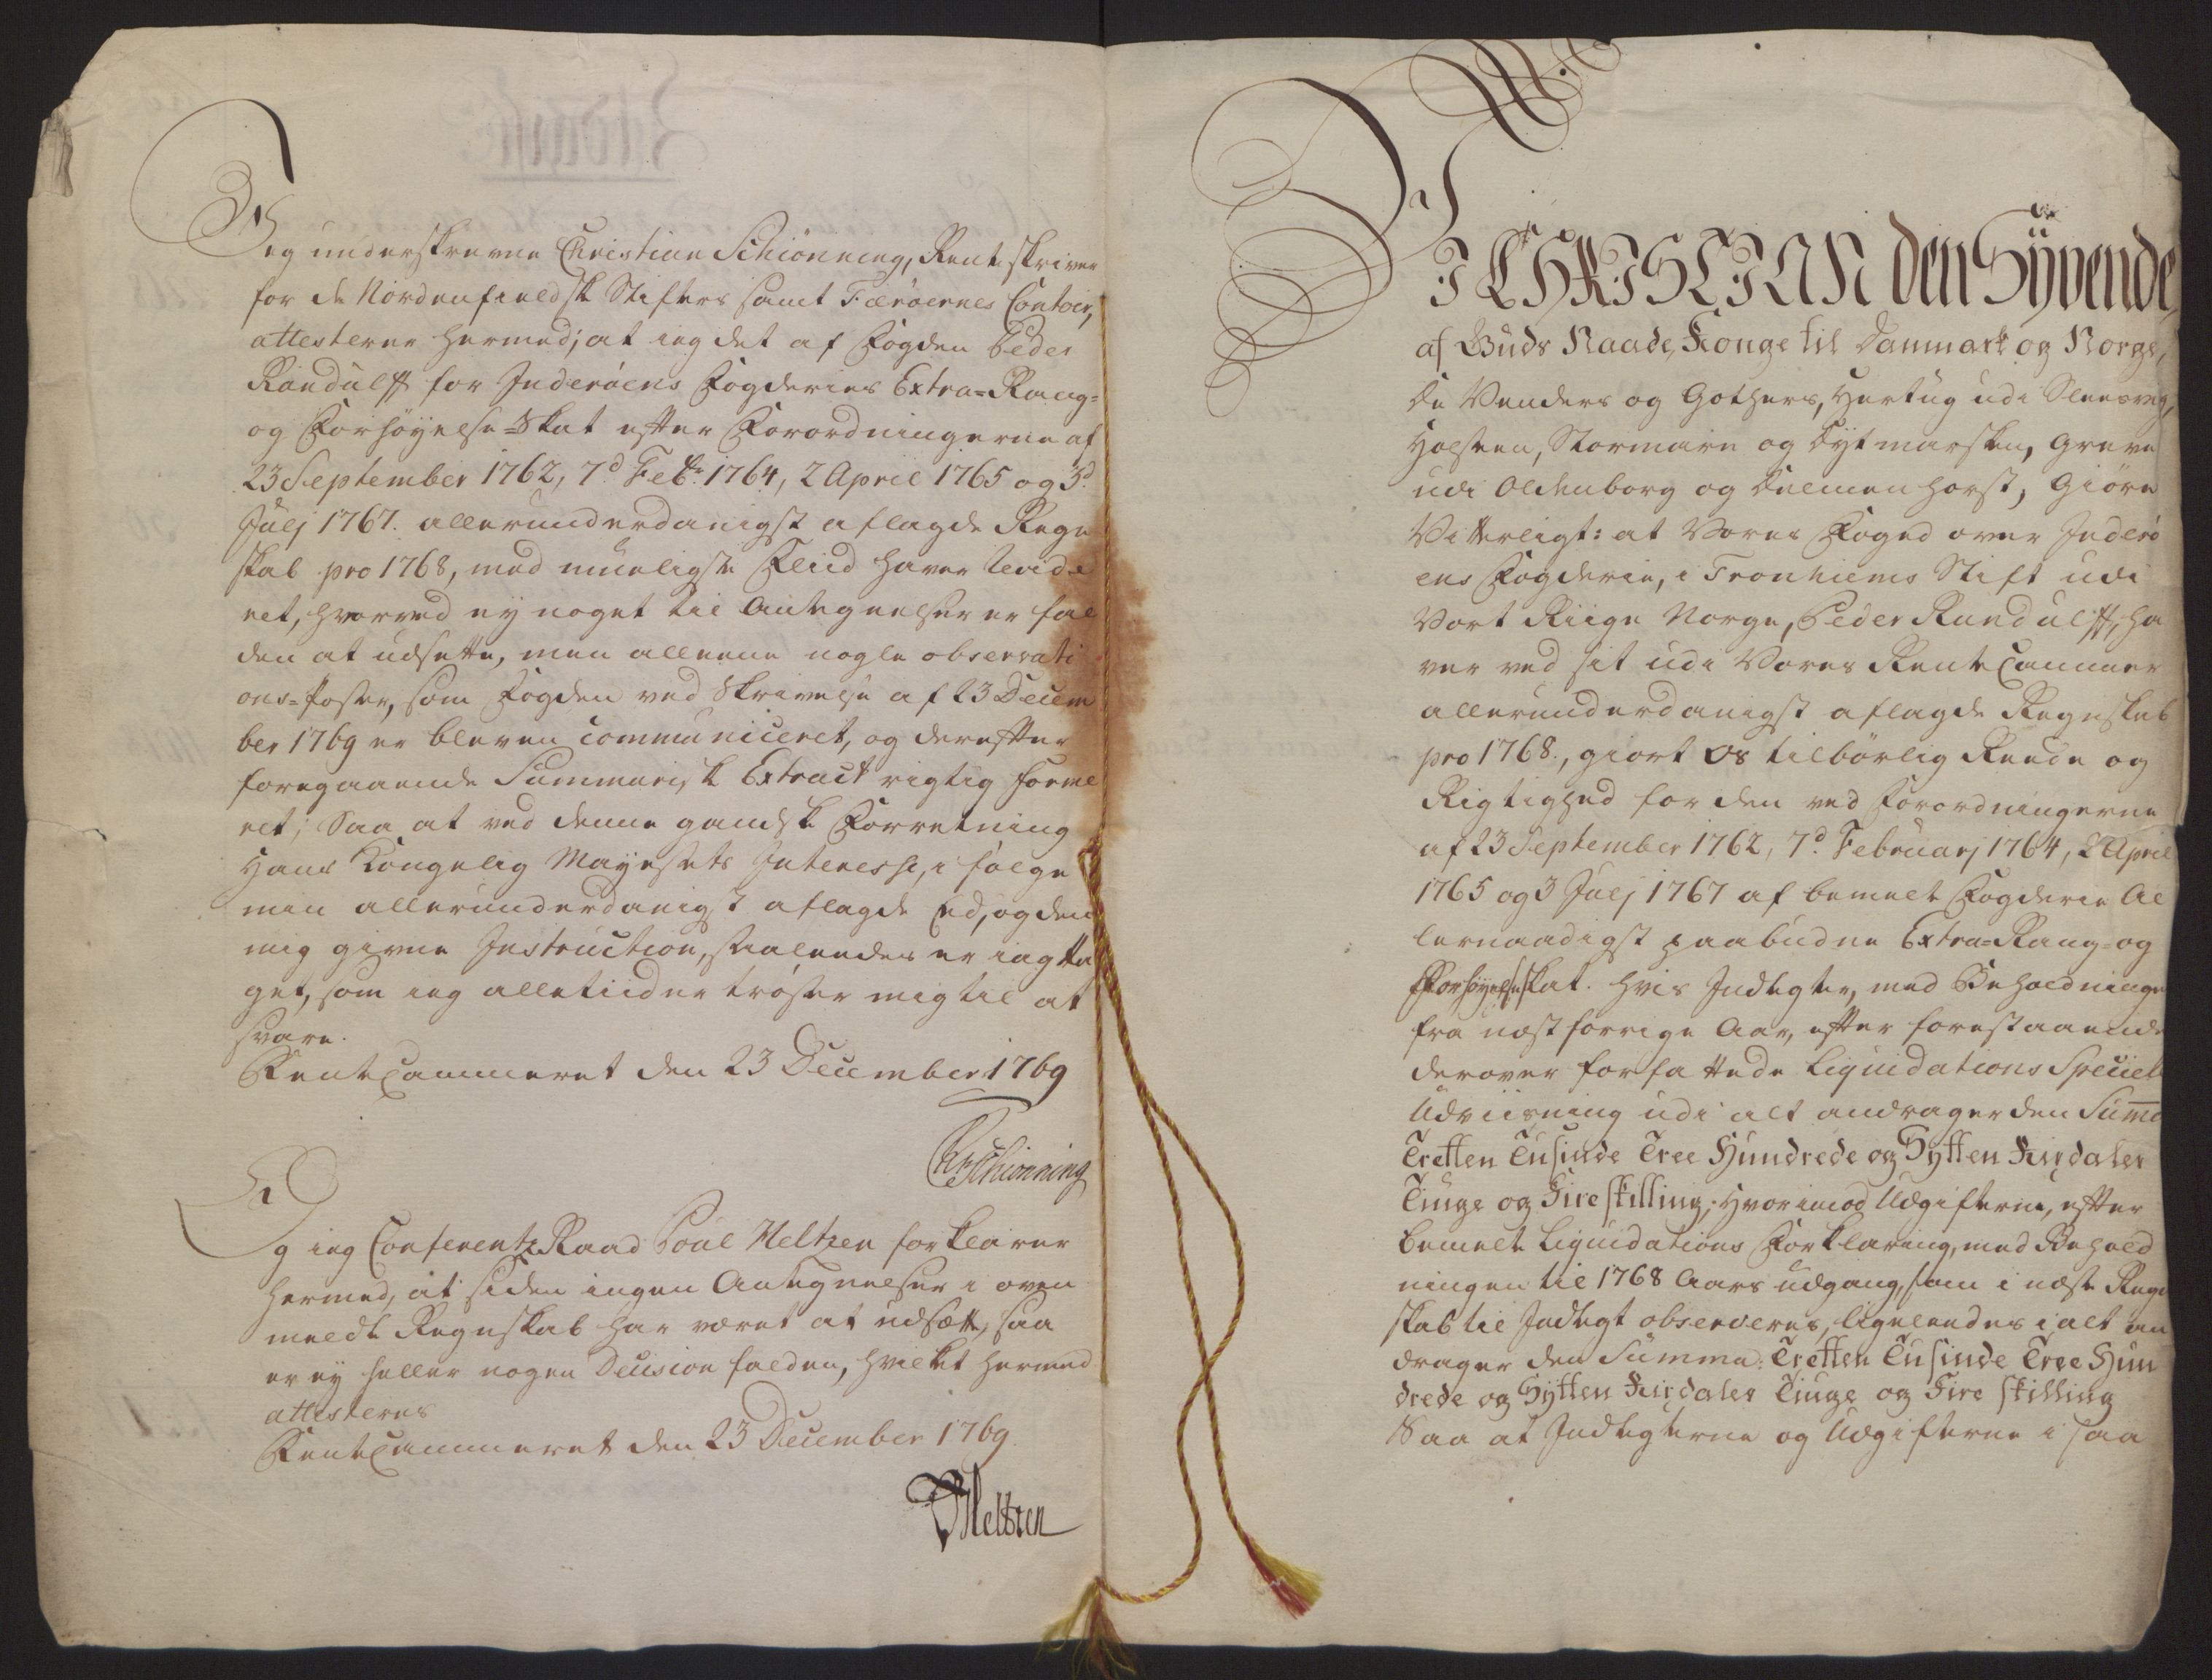 Jeg underskrevne Christian Schiönning, Rentskriver
for de Nordenfieldsk Stifters samt Færöernes Contoir,
attesterer hermed; at ieg det af Fogden Peder
Randulff for Inderöens Fogderies Extra-Rang-
og Forhöyelse-Skat efter Forordningerne af
23 September 1762, 7d. Febr. 1764, 2 April 1765 og 3d.
Julj 1767. allerunderdanigst aflagde Regn
skab pro 1768, med mueligste Fliid haver revide
ret, hvorved ey noget til Antegnelser er fal
den at udsette, men alleene nogle observati
ons-Poster, som Fogden ved Skrivelse af 23 Decem
ber 1769 er bleven communiceret, og derefter
foregaaende Summarisk Extract rigtig forme
ret; Saa at ved denne gandske Forretning
Hans Kongelig Mayestets Interesse, i fölge
min allerunderdanigst aflagde Eed, og den
mig givne Instruction, saaleedes er iagtta
get, som ieg alletiider tröster mig til at
svare.
RenteCammeret den 23 December 1769
Chr Schionning
Og ieg ConferentzRaad Poul Heltzen forklarer
hermed, at siden ingen Antegnelser i oven
meldte Regnskab har været at udsætte, saa
er ey heller nogen Decision falden, hvilket hermed
attesteres
RenteCammeret den 23 December 1769.
PHeltzen
VI CHRISTIAN den Syvende,
af Guds Naade, Konge til Danmark og Norge,
de Venders og Gothers, Hertug udi Sleesvig,
Holsteen, Stormarn og Dytmarsken, Greve
udi Oldenborg og Delmenhorst, Giöre
Vitterligt: at Vores Foged over Inderö
ens Fogderie, i Tronhiems Stift udi
Vort Riige Norge, Peder Randulff, ha
ver ved sit udi Vores RenteCammer
allerunderdanigst aflagde Regnskab
pro 1768., giort os tilbörlig Reede og
Rigtighed for den ved Forordningerne
af 23 September 1762, 7d. Februarj 1764, 2 April
1765 og 3 Julj 1767 af bemelte Fogderie Al
lernaadigst paabudne Extra-Rang- og
Forhöyelseskat. Hvis Indtegter, med Beholdninge
fra næstforrige Aar, efter forestaaende
derover forfattede Liquidations Speciel
Udviisning udi alt andrager den Summa
Tretten Tusinde Tree Hundrede og Sytten Rixdaler
Tiuge og Fire skilling; Hvorimod Udgifterne, efter
bemelte Liquidations Forklaring, med Behold
ningen til 1768 Aars udgang, som i næste Regn
skab til Indtegt observeres, ligeleedes i alt an
drager den Summa: Tretten Tusinde Tree Hun
drede og Sytten Rixdaler Tiuge og Fire skilling
Saa at Indtegterne og Udgifterne i saa